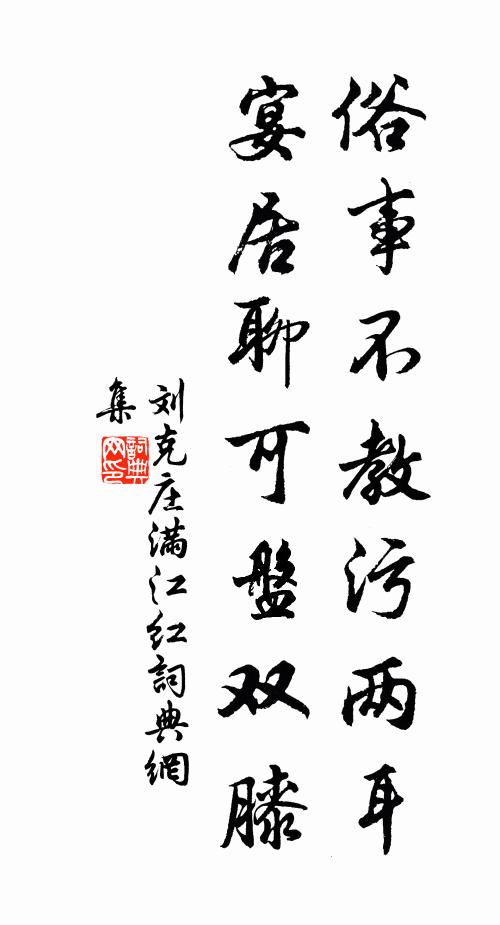 俗事不教污两耳
宴居聊可盤双膝
刘克庄满江红詞典網
集
詞典
网印